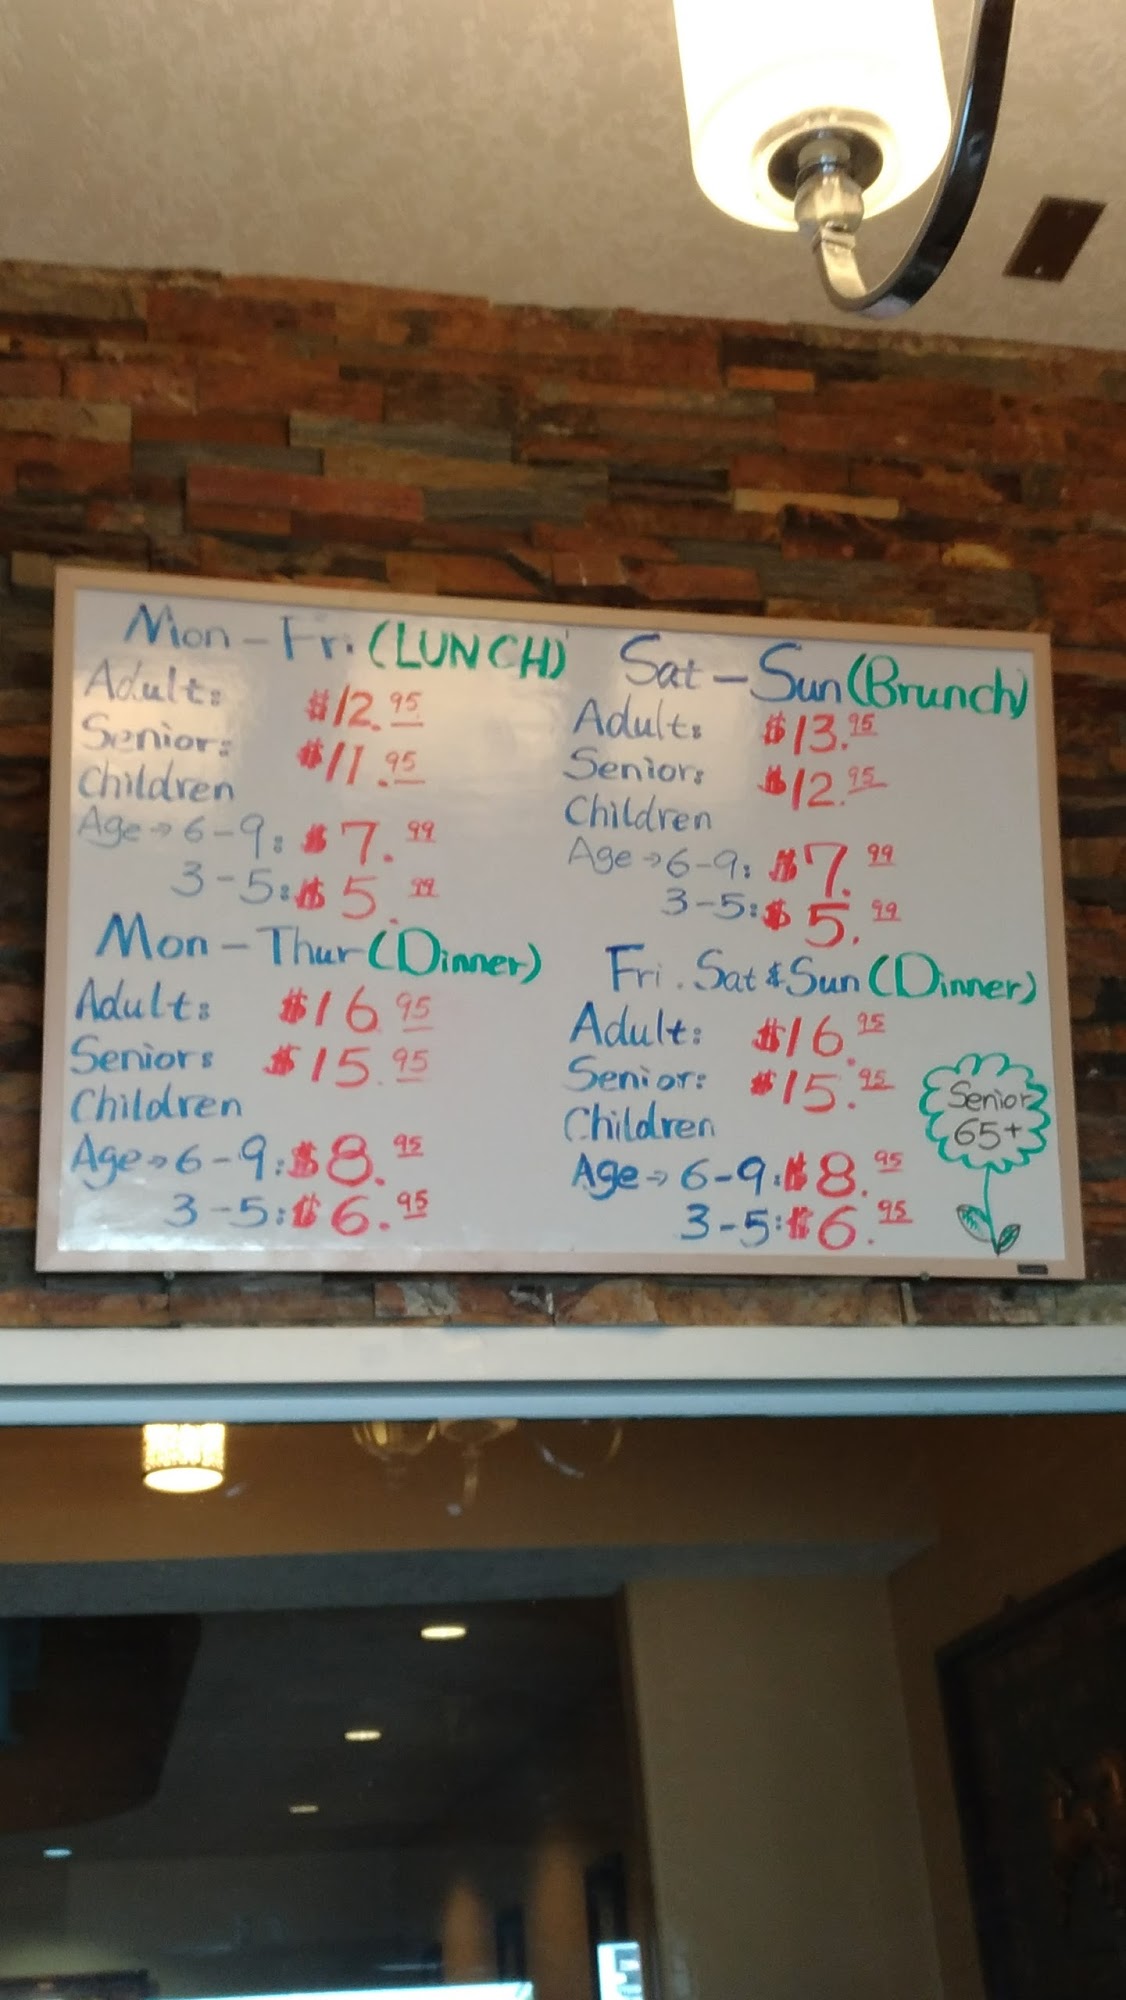 Mon - Fri. (LUNCH)
Adult: $12.95
Senior: $11.95
Children
Age → 6-9: $7.99
3-5: $5.99
Sat - Sun (Brunch)
Adult: $13.95
Senior: $12.95
Children
Age → 6-9: $7.99
3-5: $5.99
Mon - Thur (Dinner)
Adult: $16.95
Senior: $15.95
Children
Age → 6-9: $8.95
3-5: $6.95
Fri. Sat & Sun (Dinner)
Adult: $16.95
Senior: $15.95
Children
Age → 6-9: $8.95
3-5: $6.95
Senior
65+